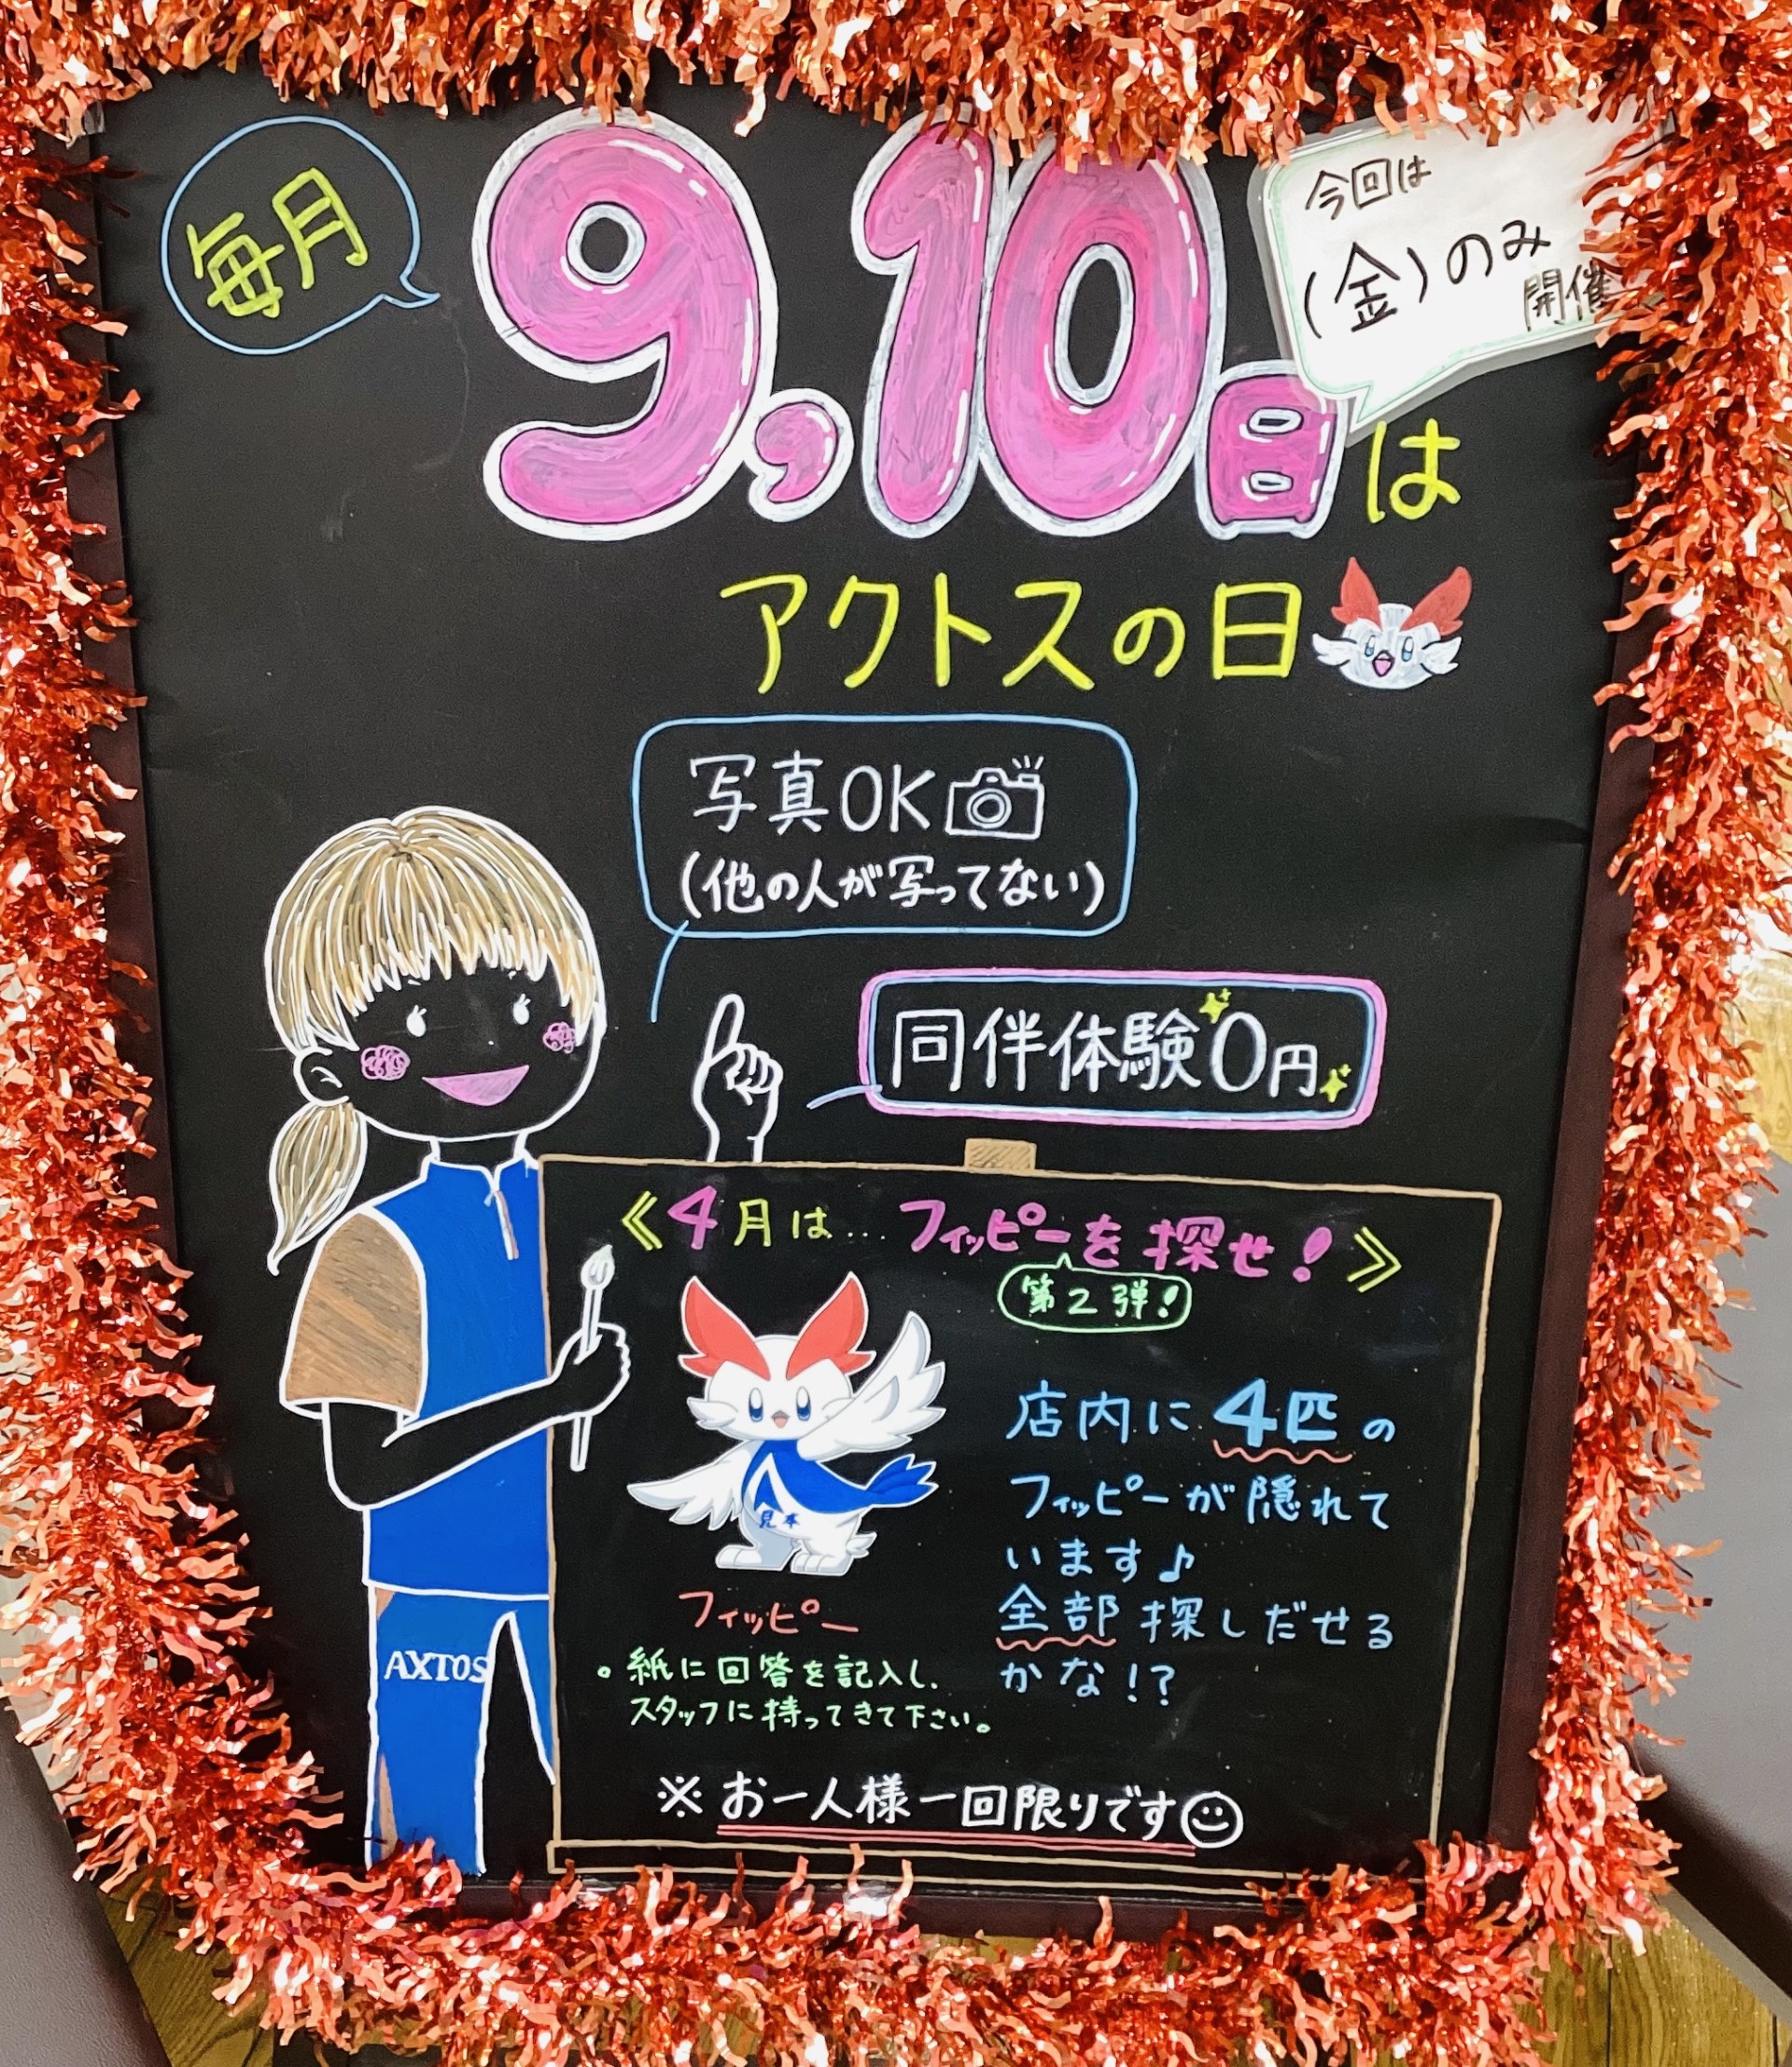 毎月
9,10日は
今回は
(金)のみ
開催
アクトスの日
写真OK
(他の人が写ってない)
同伴体験0円
《4月は…フィッピーを探せ!》
第2弾!
店内に4匹の
フィッピーが隠れて
います♪
全部探しだせる
かな!?
見本
フィッピー
。紙に回答を記入し、
スタッフに持ってきて下さい。
※お一人様一回限りです
AXTOS